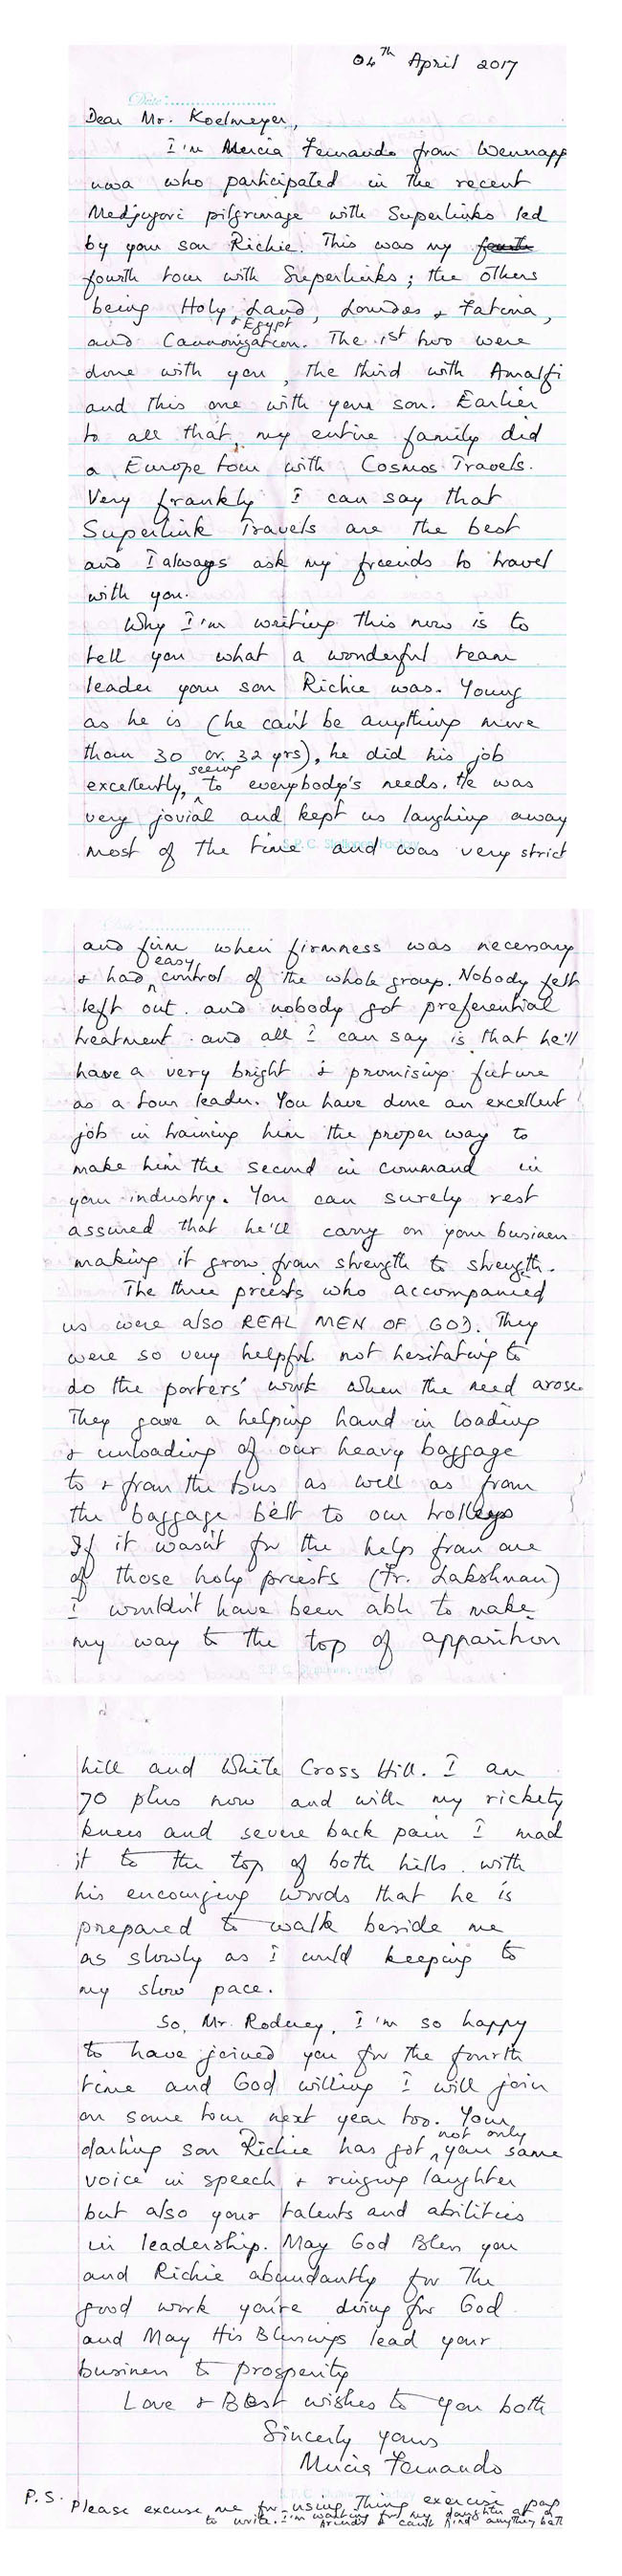 04th April 2017
Date:
Dear Mr. Koelmeyer,
I'm Mercia Fernando from Wennapp
uwa who participated in the recent
Medjugori pilgrimage with Superlinks led
by your son Richie. This was my fourth
fourth tour with Superlinks; the others
being Holy Land, Lourdes & Fatima,
& Egypt
and Cannonization. The 1st two were
done with you, the third with Amalfi
and this one with your son. Earlier
to all that, my entire family did
a Europe tour with Cosmos Travels.
Very frankly I can say that
Superlink Travels are the best
and I always ask my friends to travel
with you.
Why I'm writing this now is to
tell you what a wonderful team
leader your son Richie was. Young
as he is (he can't be anything more
than 30 or 32 yrs), he did his job
seeing
excellently, to everybody's needs. He was
very jovial and kept us laughing away
most of the time and was very strict
and firm when firmness was necessary
easy
& had control of the whole group. Nobody felt
left out and nobody got preferential
treatment and all I can say is that he'll
have a very bright & promising future
as a tour leader. You have done an excellent
job in training him the proper way to
make him the second in command in
your industry. You can surely rest
assured that he'll carry on your business
making it grow from strength to strength.
The three priests who accompanied
us were also REAL MEN OF GOD. They
were so very helpful not hesitating to
do the porters' work when the need arose.
They gave a helping hand in loading
& unloading of our heavy baggage
to & from the bus as well as from
the baggage belt to our trolleys
If it wasn't for the help from one
of those holy priests (Fr. Lakshman)
I wouldn't have been able to make
my way to the top of apparition
hill and White Cross Hill. I am
70 plus now and with my rickety
knees and severe back pain I mad
it to the top of both hills with
his encouging words that he is
prepared to walk beside me
as slowly as I could keeping to
my slow pace.
So, Mr. Rodney, I'm so happy
to have joined you for the fourth
time and God willing I will join
on some tour next year too. Your
not only
darling son Richie has got your same
voice in speech & ringing laughter
but also your talents and abilities
in leadership. May God Bless you
and Richie abundantly for the
good work you're doing for God
and May His Blessings lead your
business to prosperity
Love & Best wishes to you both
Sincerly yours
Mercia Fernando
P.S. Please excuse me for using Thing exercise pap
to write. I'm waiting for my daughter at a
friends & can't find anything bett